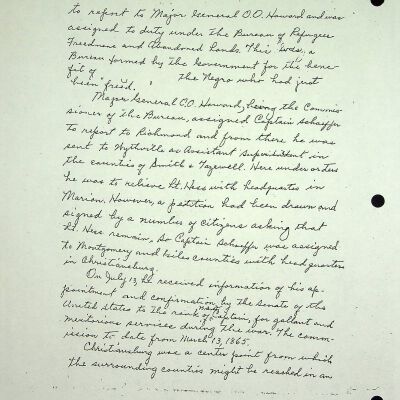 to report to Major General O.O. Howard and was
assigned to duty under the Bureau of Refugees
Freedmen and Abandoned Lands. This was, a
Bureau formed by the Government for the bene-
fit of the Negro who had just
"been freed."
Major General O.O. Howard, being the Commis-
sioner of the Bureau, assigned Captain Schaeffer
to report to Richmond and from there he was
sent to Wytheville as Assistant Superintendent in
the counties of Smith & Tazewell. Here under orders
he was to relieve Lt. Hess with headquarter in
Marion. However, a petition had been drawn and
signed by a number of citizens asking that
Lt. Hess remain, so Captain Schaeffer was assigned
to Montgomery and Giles counties with headquarters
in Christiansburg.
On July 13, he received information of his ap-
pointment and confirmation by the Senate of the
United States to the rank of Captain, for gallant and
meritorious services during the war. The comm-
ission to date from March 13, 1865.
Christiansburg was a center point from which
the surrounding counties might be reached in an